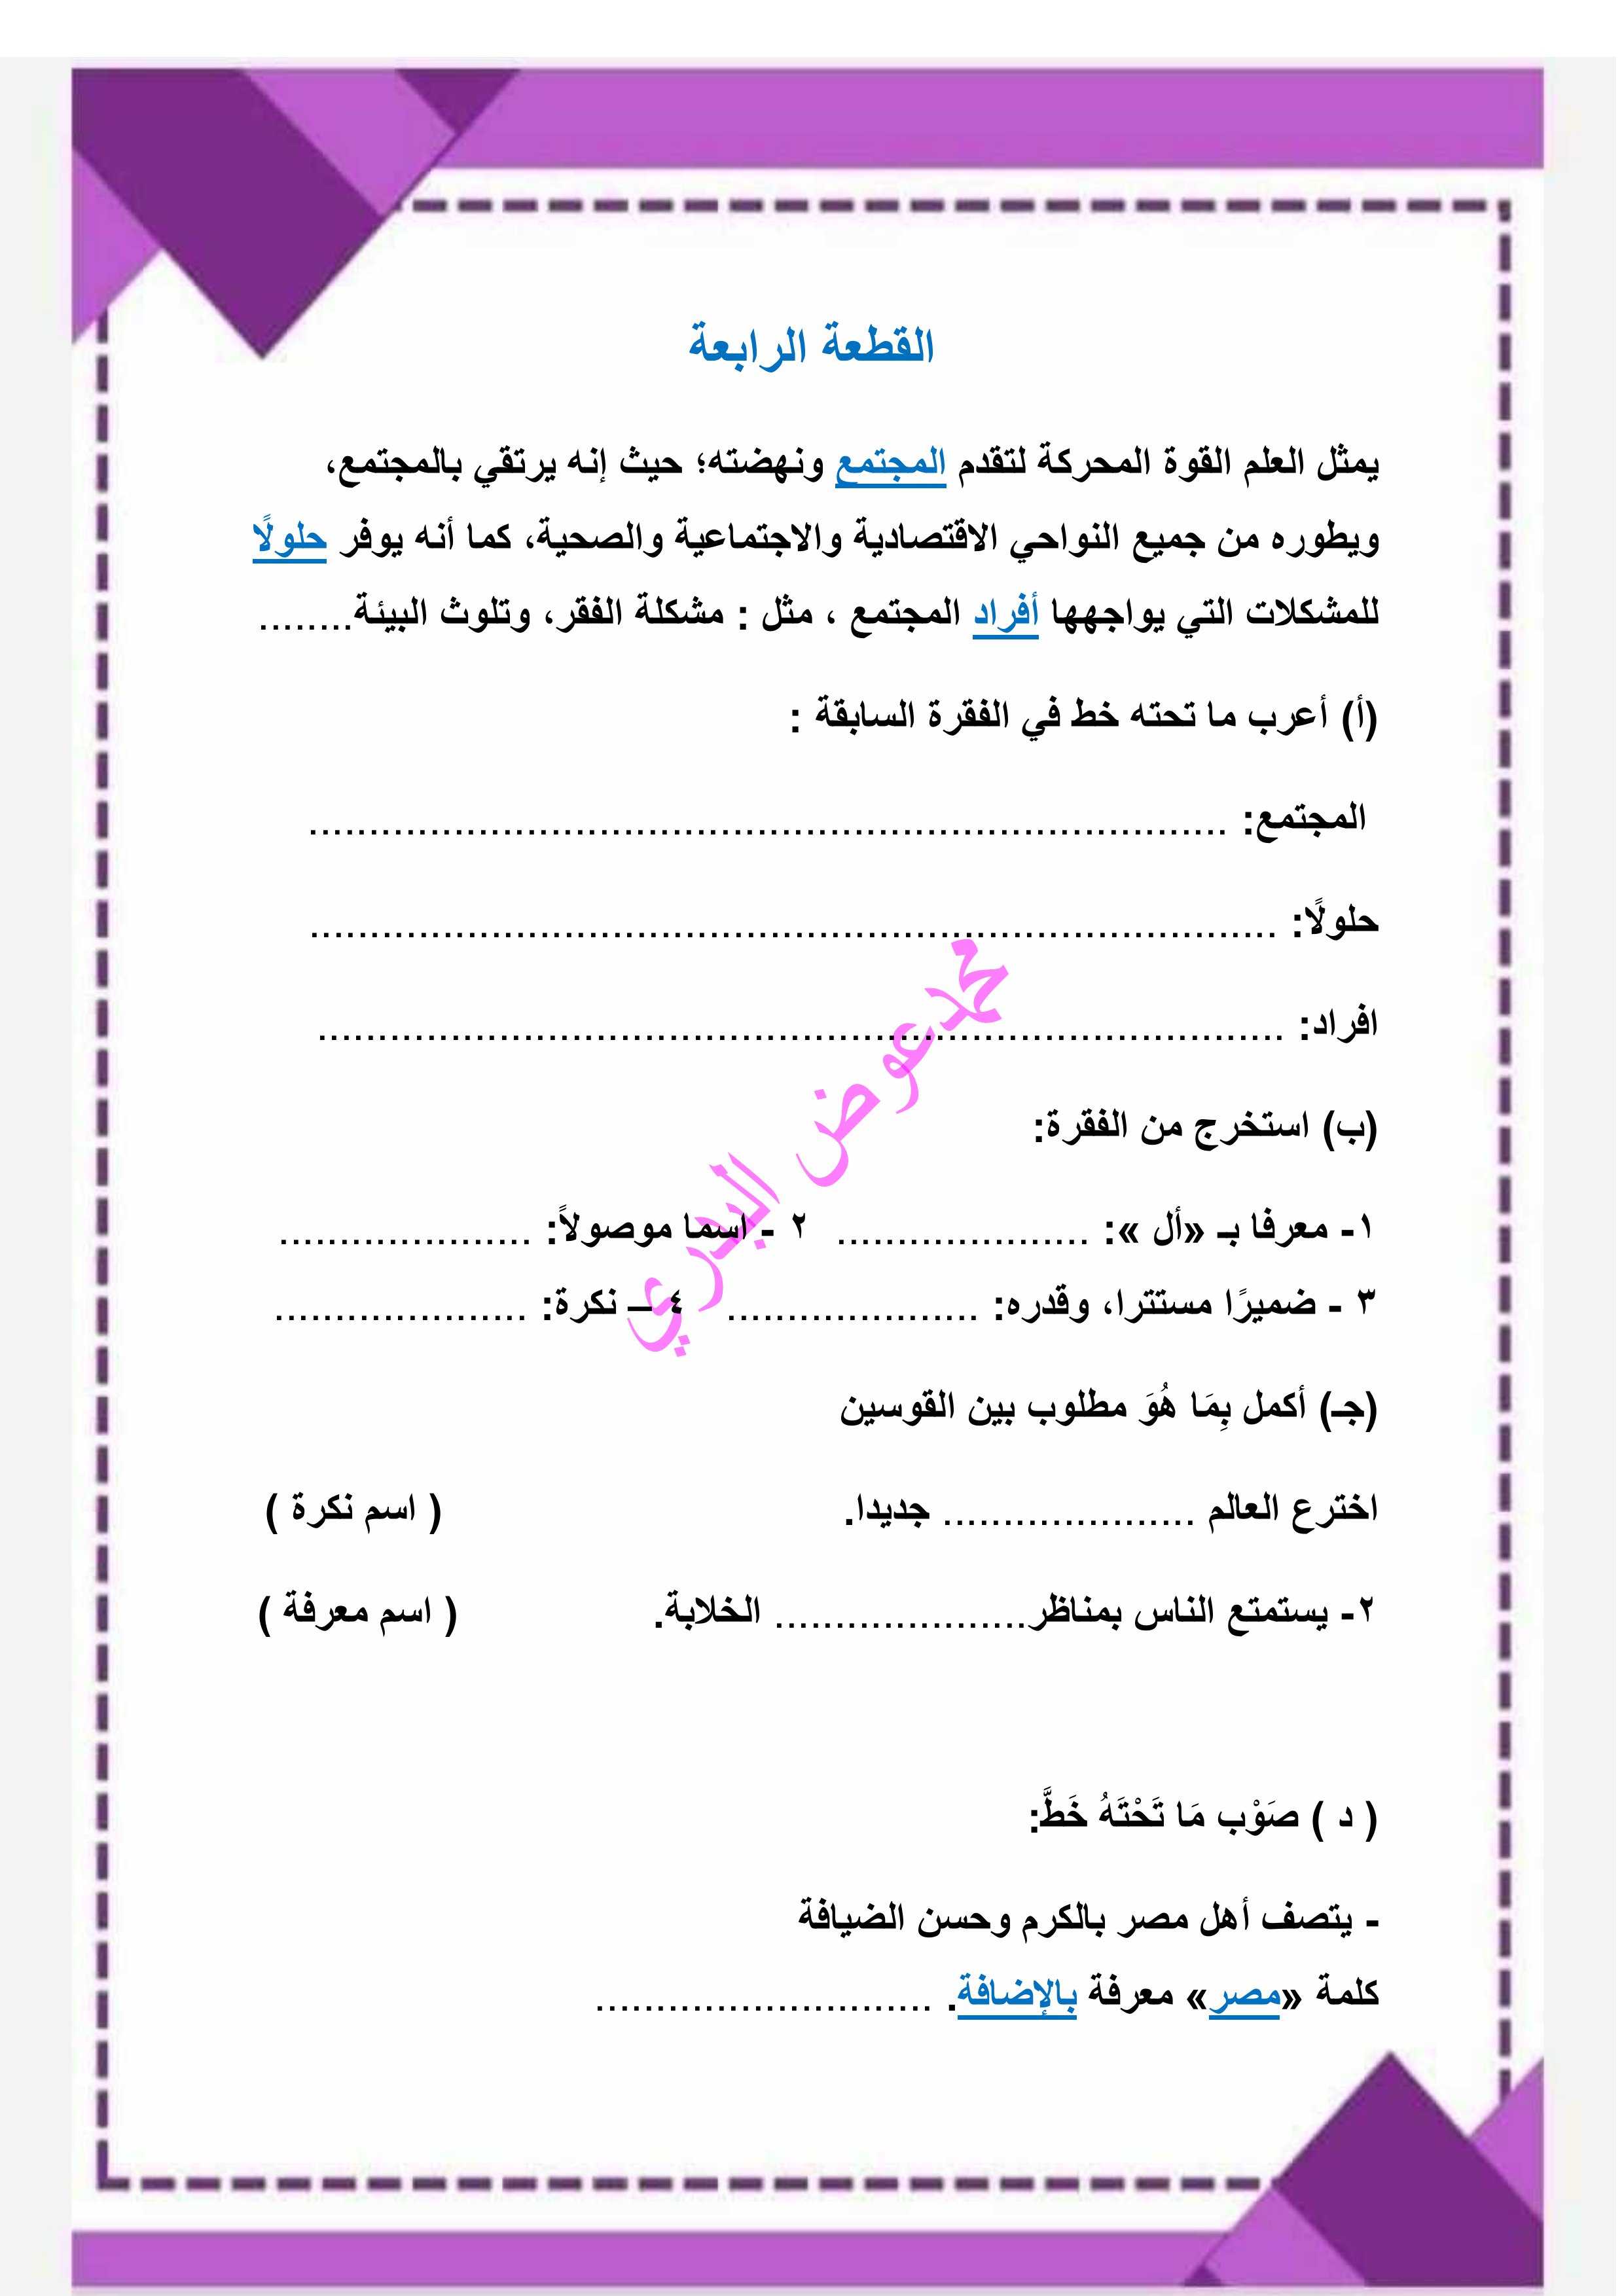 القطعة الرابعة
يمثل العلم القوة المحركة لتقدم المجتمع ونهضته؛ حيث إنه يرتقي بالمجتمع،
ويطوره من جميع النواحي الاقتصادية والاجتماعية والصحية، كما أنه يوفر حلولًا
للمشكلات التي يواجهها أفراد المجتمع ، مثل : مشكلة الفقر، وتلوث البيئة........
(أ) أعرب ما تحته خط في الفقرة السابقة :
المجتمع: ............................................................................
حلولًا: ................................................................................
افراد: ................................................................................
(ب) استخرج من الفقرة:
١- معرفا بـ «أل »: ..................... ٢ - اسما موصولاً: .....................
٣ - ضميرًا مستترا، وقدره: ..................... ٤ – نكرة: .....................
(جـ) أكمل بِمَا هُوَ مطلوب بين القوسين
اخترع العالم ..................... جديدا. ( اسم نكرة )
٢- يستمتع الناس بمناظر..................... الخلابة. ( اسم معرفة )
( د ) صَوْب مَا تَحْتَهُ خَطَّ:
- يتصف أهل مصر بالكرم وحسن الضيافة
كلمة «مصر» معرفة بالإضافة. ............................
محمد عوض البدري